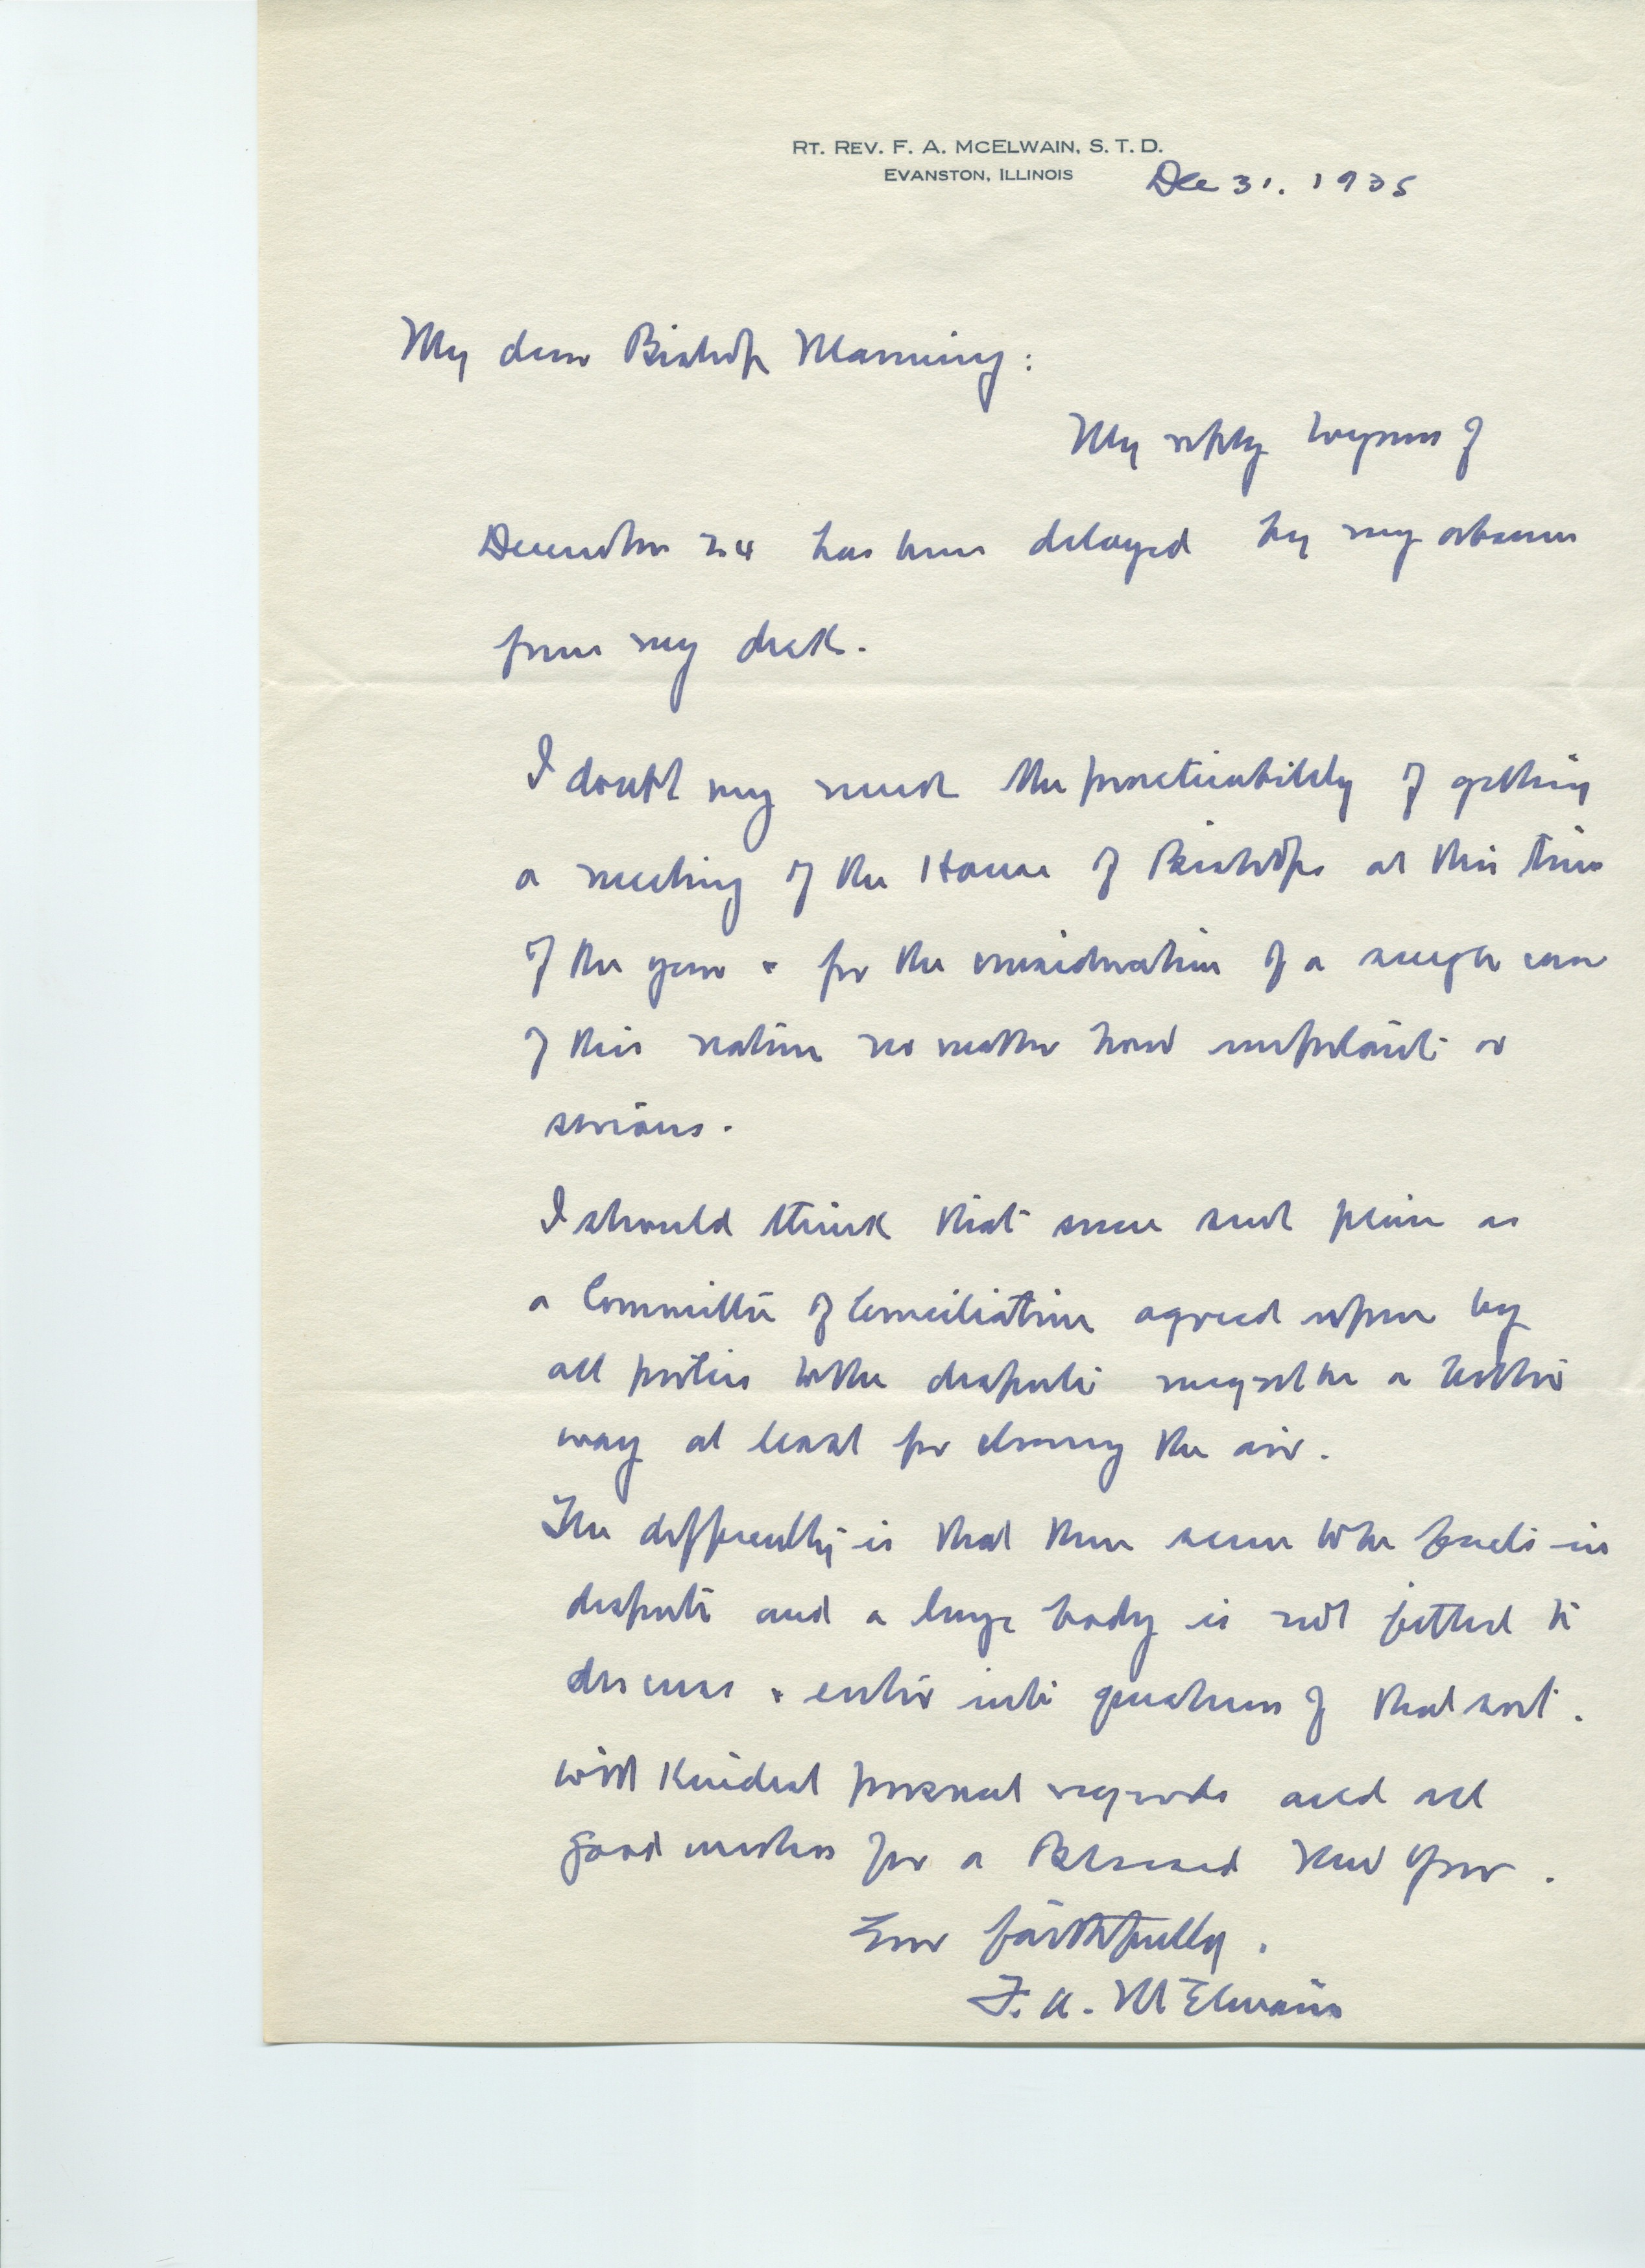 RT. REV. F. A. MCELWAIN, S. T. D.
EVANSTON, ILLINOIS
Dec 31. 1935
My dear Bishop Manning:
My reply to yours of
December 24 has been delayed by my absence
from my desk.
I doubt very much the practicability of getting
a meeting of the House of Bishops at this time
of the year & for the consideration of a single case
of this nature no matter how important or
serious.
I should think that some such plan as
a Committee of Conciliation agreed upon by
all parties to the dispute might be a better
way at least for clearing the air.
The difficulty is that there seem to be facts in
dispute and a large body is not fitted to
discuss & enter into questions of that sort.
With kindest personal regards and all
good wishes for a Blessed New Year.
Ever faithfully.
F. A. McElwain